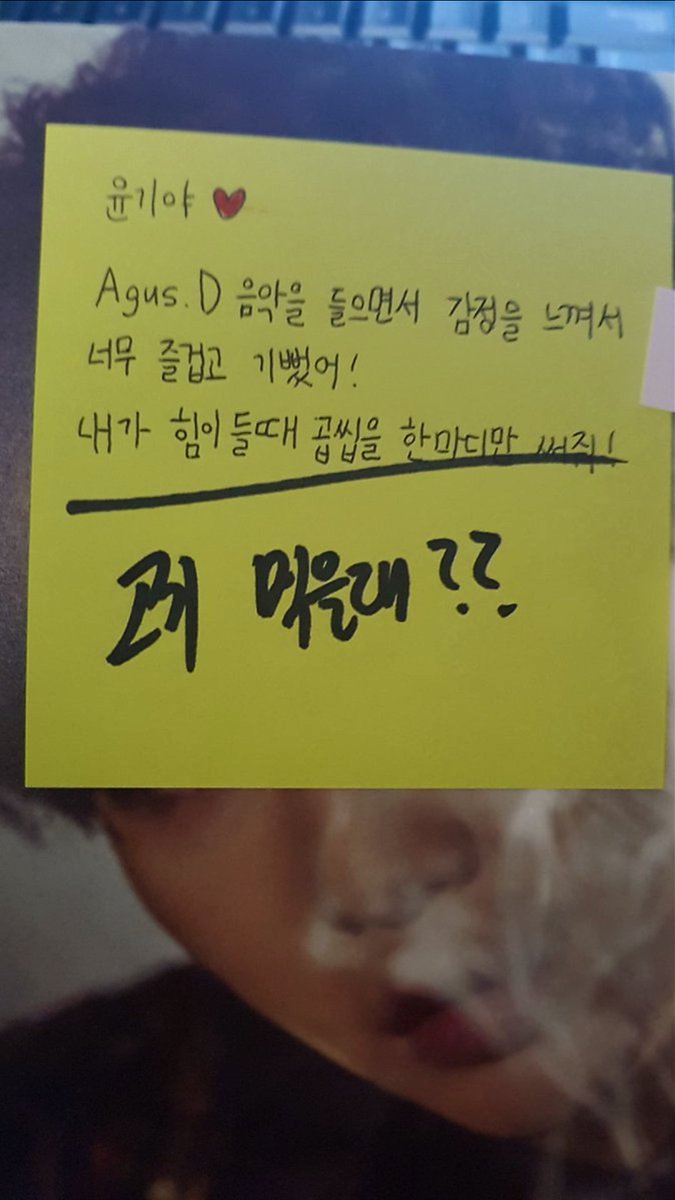 윤기야 ♥
Agus.D 음악을 들으면서 감정을 느껴서
너무 즐겁고 기뻤어!
내가 힘이 들때 곱씹을 한마디만 써줘!
고기 먹을래??